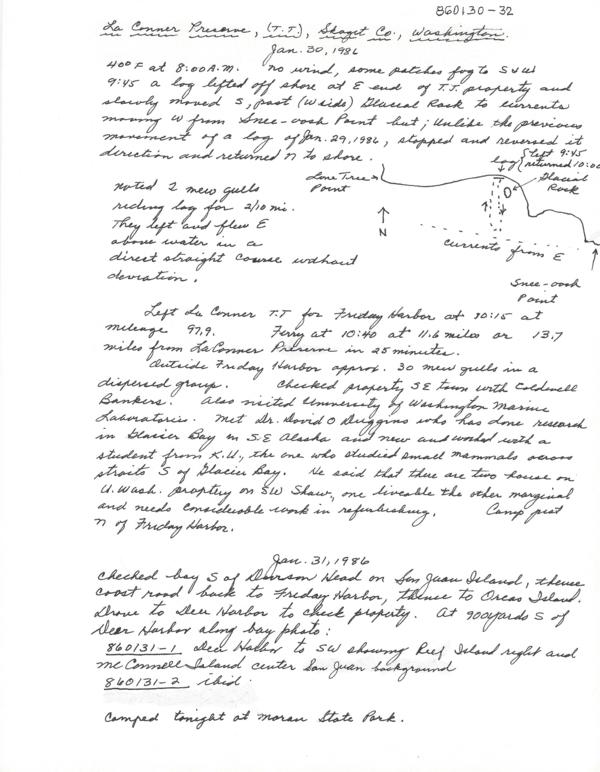 860130-32
La Conner Preserve, (T.T), Skagit Co., Washington.
Jan. 30, 1986
40°F at 8:00 A.M. no wind, some patches fog to S & W
9:45 a log lifted off shore at E end of T.T. property and
slowly moved S, past (W side) Glacial Rock to currents
moving W from Snee-oosh Point but; Unlike the previous
movement of a log of Jan. 29, 1986, stopped and reversed it
direction and returned N to shore.
log { left 9:45
returned 10:00
Lone Tree
Point
Glacial
Rock
N
currents from E
Snee-oosh
Point
noted 2 mew gulls
riding log for 2/10 mi.
They left and flew E
above water in a
direct straight course without
deviation.
Left La Conner T.T for Friday Harbor at 10:15 at
mileage 97.9. Ferry at 10:40 at 11.6 miles or 13.7
miles from LaConner Preserve in 25 minutes.
Outside Friday Harbor approx. 30 mew gulls in a
dispersed group. Checked property SE town with Coldwell
Bankers. Also visited University of Washington Marine
Laboratories. Met Dr. David O Duggins who has done research
in Glacier Bay in S.E Alaska and new and worked with a
student from K.U., the one who studied small mammals across
straits S of Glacier Bay. He said that there are two house on
U. Wash. proptery on SW Shaw, one liveable the other marginal
and needs considerable work in refurbishing. Camp just
N of Friday Harbor.
Jan. 31, 1986
Checked bay S of Davison Head on San Juan Island, thence
coast road back to Friday Harbor, thence to Orcas Island.
Drove to Deer Harbor to check property. At 900 yards S of
Deer Harbor along bay photo:
860131-1 Deer Harbor to SW showing Reef Island right and
McConnell Island center San Juan background
860131-2 ibid.
Camped tonight at Moran State Park.